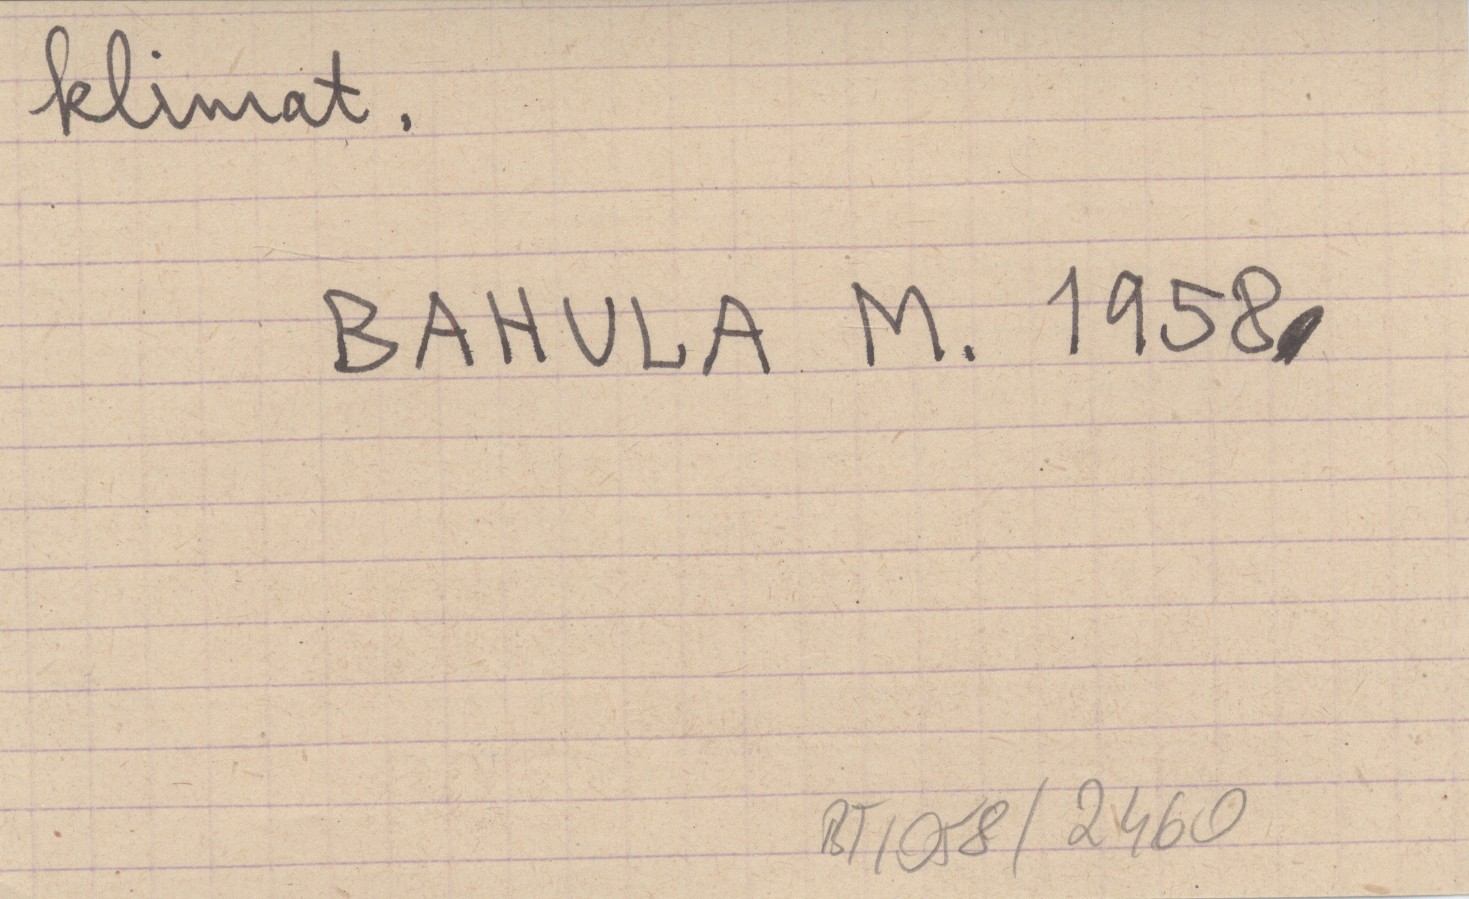 klimat.
BAHULA M. 1958
BT/058/2460